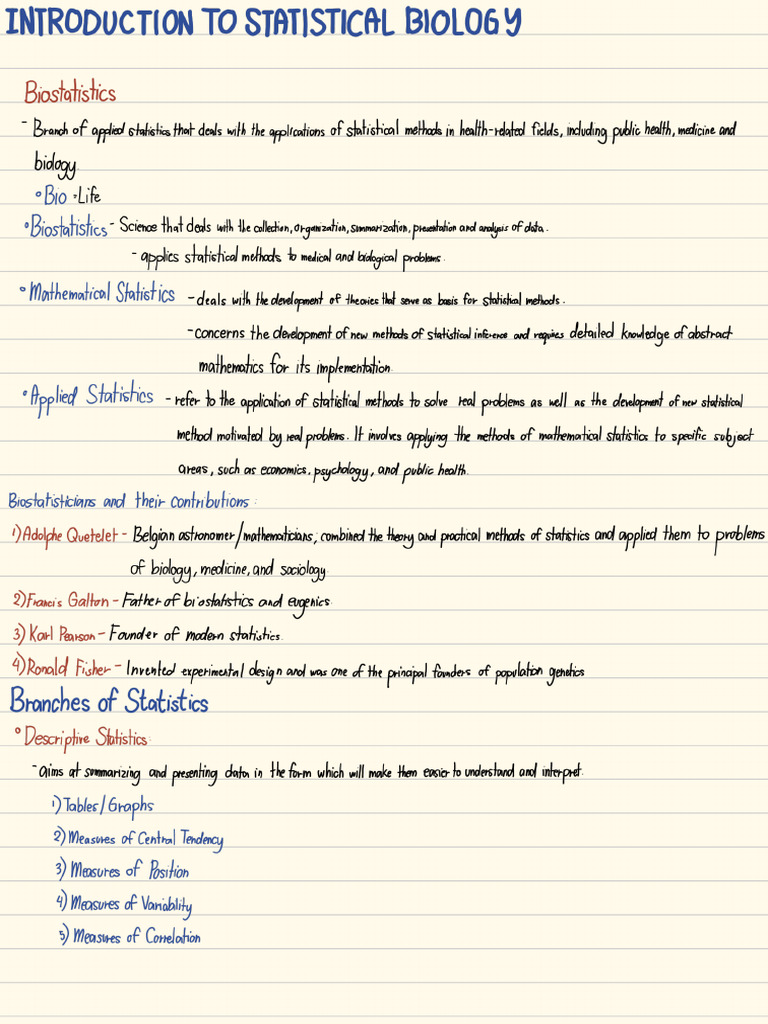 INTRODUCTION TO STATISTICAL BIOLOGY
Biostatistics
- Branch of applied statistics that deals with the applications of statistical methods in health-related fields, including public health, medicine and
biology.
° Bio - Life
° Biostatistics - Science that deals with the collection, organization, summarization, presentation and analysis of data.
- applies statistical methods to medical and biological problems.
° Mathematical Statistics - deals with the development of theories that serve as basis for statistical methods.
- concerns the development of new methods of statistical inference and requires detailed knowledge of abstract
mathematics for its implementation.
° Applied Statistics - refer to the application of statistical methods to solve real problems as well as the development of new statistical
method motivated by real problems. It involves applying the methods of mathematical statistics to specific subject
areas, such as economics, psychology, and public health.
Biostatisticians and their contributions:
1) Adolphe Quetelet - Belgian astronomer/mathematicians, combined the theory and practical methods of statistics and applied them to problems
of biology, medicine, and sociology.
2) Francis Galton - Father of biostatistics and eugenics.
3) Karl Pearson - Founder of modern statistics.
4) Ronald Fisher - Invented experimental design and was one of the principal founders of population genetics
Branches of Statistics
° Descriptive Statistics:
- aims at summarizing and presenting data in the form which will make them easier to understand and interpret.
1) Tables/Graphs
2) Measures of Central Tendency
3) Measures of Position
4) Measures of Variability
5) Measures of Correlation